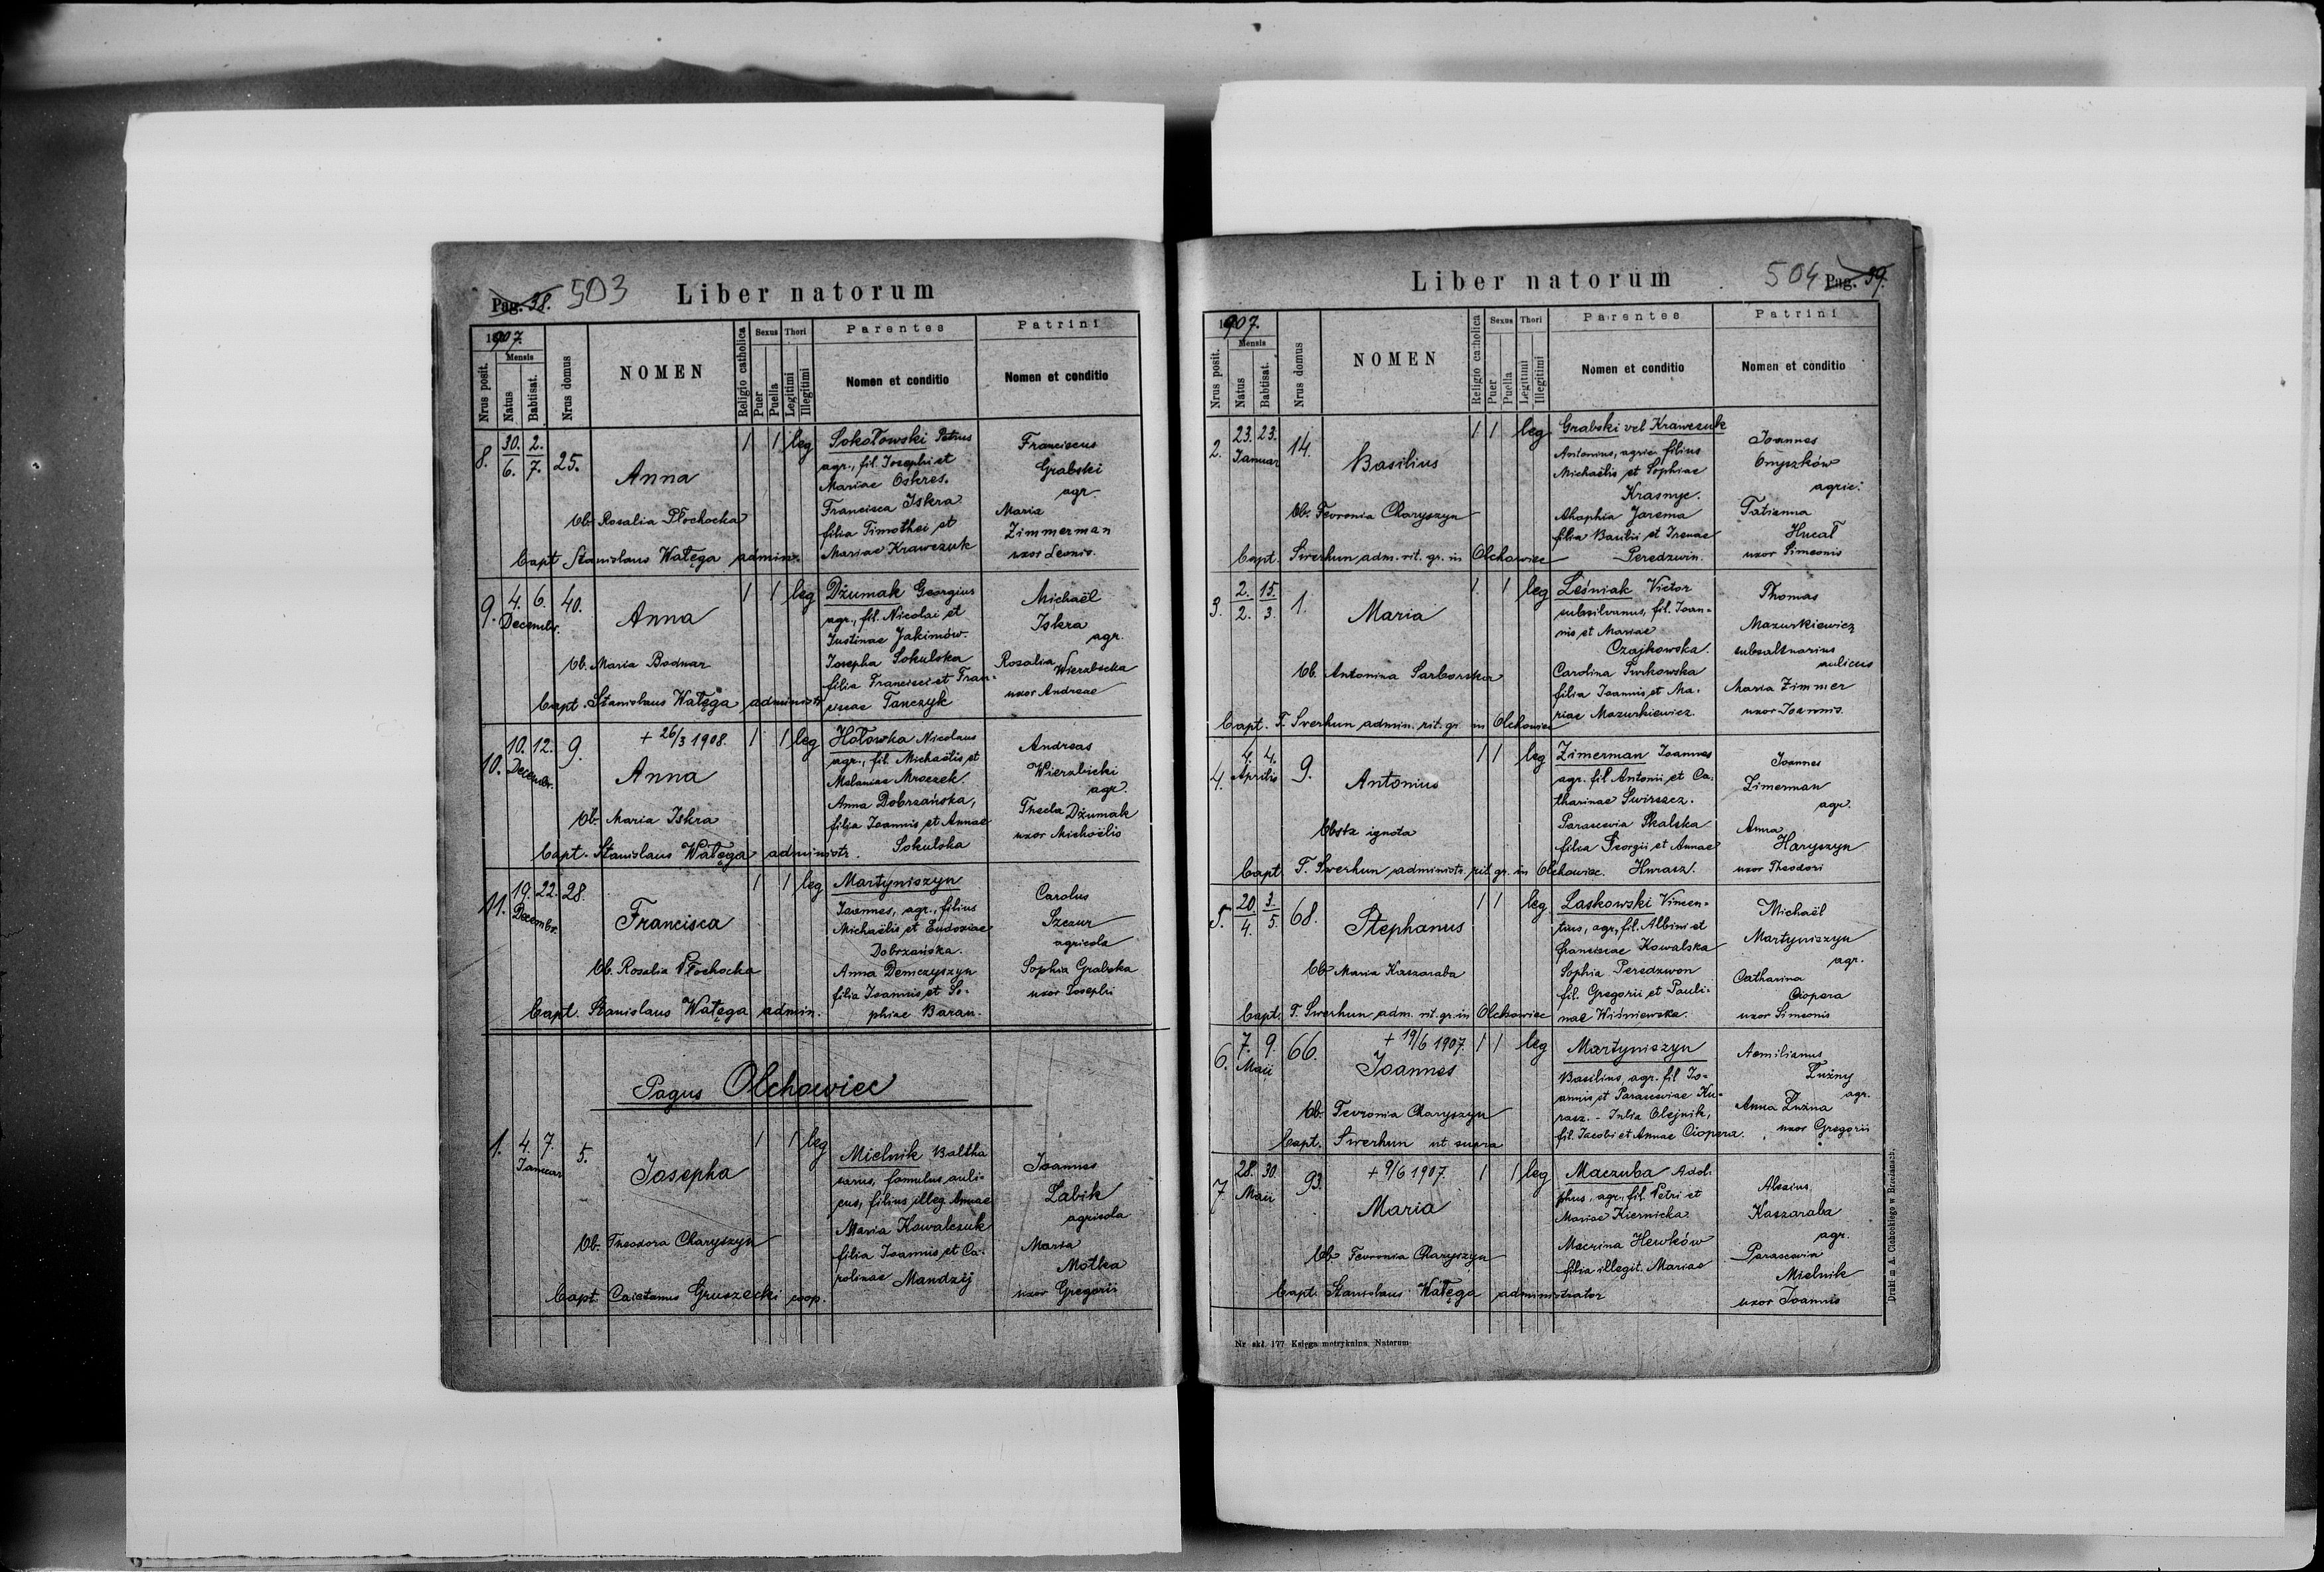 Pag. 38. 503 Liber natorum
1907.
Mensis
Nrus posit.
Natus
Babtisat.
Nrus domus
NOMEN
Religio catholica
Sexus
Puer
Puella
Thori
Legitimi
Illegitimi
Parentes
Nomen et conditio
Patrini
Nomen et conditio
8. 30. 2. 25. 1 1 leg
6. 7.
Anna
Ob. Rosalia Płochocka
Bapt Stanislaus Wałęga admin.
Sokołowski Petrus
agr., fil. Josephi et
Mariae Oskres.
Francisca Iskra
filia Timothei et
Mariae Krawczuk
Franciscus
Grabski
agr.
Maria
Zimmerman
uxor Leonis.
9. 4. 6. 40. 1 1 leg
Decembr.
Anna
Ob. Maria Bodnar
Bapt. Stanislaus Wałęga administr.
Dżumak Georgius
agr., fil. Nicolai et
Justinae Jakimów.
Josepha Sokulska
filia Francisci et Fran-
ciscae Tanczyk
Michaël
Iskra
agr.
Rosalia Wierzbicka
uxor Andreae
10. 10. 12. 9. 1 1 leg
Decembr.
+ 26/3 1908.
Anna
Ob. Maria Iskra
Bapt. Stanislaus Wałęga administr.
Hołowka Nicolaus
agr., fil. Michaëlis et
Melaniae Mroczek
Anna Dobrzańska,
filia Joannis et Annae
Sokulska
Andreas
Wierzbicki
agr.
Thecla Dżumak
uxor Michaëlis
11. 19. 22. 28. 1 1 leg
Decembr.
Francisca
Ob. Rosalia Płochocka
Bapt. Stanislaus Wałęga admin.
Martyniszyn
Joannes, agr., filius
Michaëlis et Eudoxiae
Dobrzańska.
Anna Demczyszyn
filia Joannis et So-
phiae Baran.
Carolus
Szczur
agricola
Sophia Grabska
uxor Josephi
Pagus Olchowiec
1. 4. 7. 5. 1 1 leg
Januar
Josepha
Ob. Theodora Charyszyn
Bapt. Caietanus Gruszecki coop.
Mielnik Baltha
sarus, famulus auli-
cus, filius illeg. Annae
Maria Kowalczuk
filia Joannis et Ca-
rolinae Mandzij
Joannes
Łabik
agricola
Maria
Motka
uxor Gregorii
Liber natorum 504 Pag. 39.
1907.
Mensis
Nrus posit.
Natus
Babtisat.
Nrus domus
NOMEN
Religio catholica
Sexus
Puer
Puella
Thori
Legitimi
Illegitimi
Parentes
Nomen et conditio
Patrini
Nomen et conditio
2. 23. 23. 14. 1 1 leg
Januar
Basilius
Ob. Fevronia Charyszyn
Bapt. Swerhun adm. rit. gr. in Olchowiec
Grabski vel Krawczuk
Antonius, agric. filius
Michaëlis et Sophiae
Krasnyc.
Ahaphia Jarema
filia Basilii et Irenae
Peredzwin.
Joannes
Onyszków
agric.
Tatianna
Hucał
uxor Simeonis
3. 2. 15. 1. 1 1 leg
2. 3.
Maria
Ob. Antonina Sarborska
Bapt. T. Swerhun admin. rit. gr. in Olchowiec
Leśniak Victor
subsilvanus, fil. Joan-
nis et Mariae
Czajkowska.
Carolina Turkowska
filia Joannis et Ma-
riae Mazurkiewicz.
Thomas
Mazurkiewicz
subsaltuarius
aulicus
Maria Zimmer
uxor Joannis.
4. 4. 4. 9. 1 1 leg
Aprilis
Antonius
Obstx ignota
Bapt T. Swerhun administr. rit gr. in Olchowiec.
Zimerman Joannes
agr. fil Antonii et Ca-
tharinae Swirszcz.
Parascevia Skalska
filia Georgii et Annae
Hurasz.
Joannes
Zimerman
agr.
Anna
Haryszyn
uxor Theodori
5. 20 3. 68. 1 1 leg
4. 5.
Stephanus
Ob. Maria Kaszaraba
Bapt. T. Swerhun adm. rit. gr. in Olchowiec
Laskowski Vincen-
tius, agr., fil. Albini et
Franciscae Kowalska
Sophia Peredzwon
fil. Gregorii et Pauli-
nae Wiśniewska.
Michaël
Martyniszyn
agr.
Catharina
Ciopera
uxor Simeonis
6. 7. 9. 66. 1 1 leg
Maii
+ 19/6 1907.
Joannes
Ob. Fevronia Charyszyn
Bapt. Swerhun ut supra
Martyniszyn
Basilius, agr. fil Jo-
annis et Parasceviae Ku-
rasz. - Julia Olejnik,
fil. Jacobi et Annae Ciopera.
Aemilianus
Łużny
agr.
Anna Łużna
uxor Gregorii
7 28. 30. 93. 1 1 leg
Maii
+ 9/6 1907.
Maria
Ob. Fevronia Charyszyn
Bapt. Stanislaus Wałęga administrator
Maczuba Adol-
phus, agr., fil. Petri et
Mariae Kiernicka.
Macrina Hewków
filia illegit. Mariae
Alexius
Kaszaraba
agr.
Parascevia
Mielnik
uxor Joannis
Nr. skł. 177 Księga metrykalna, Natorum
Drukiem A. Cichockiego w Brzeżanach.